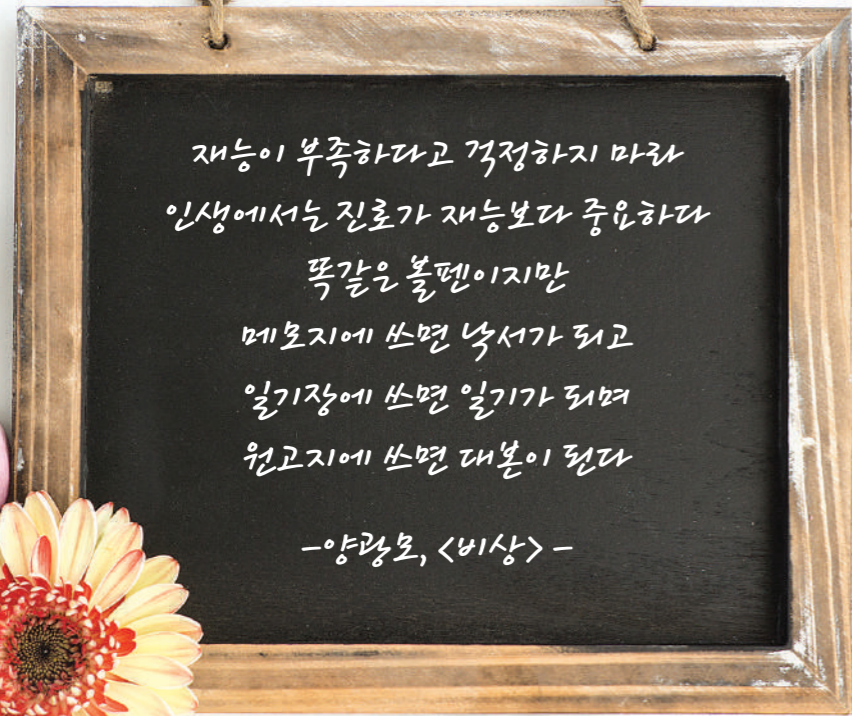 재능이 부족하다고 걱정하지 마라
인생에서는 진로가 재능보다 중요하다
똑같은 볼펜이지만
메모지에 쓰면 낙서가 되고
일기장에 쓰면 일기가 되며
원고지에 쓰면 대본이 된다
-양광모, <비상> -